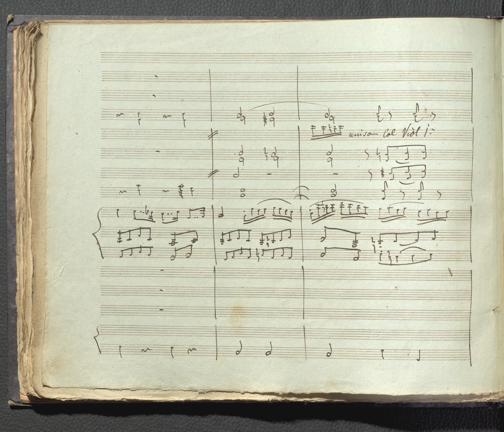 unison Col Viol 1: